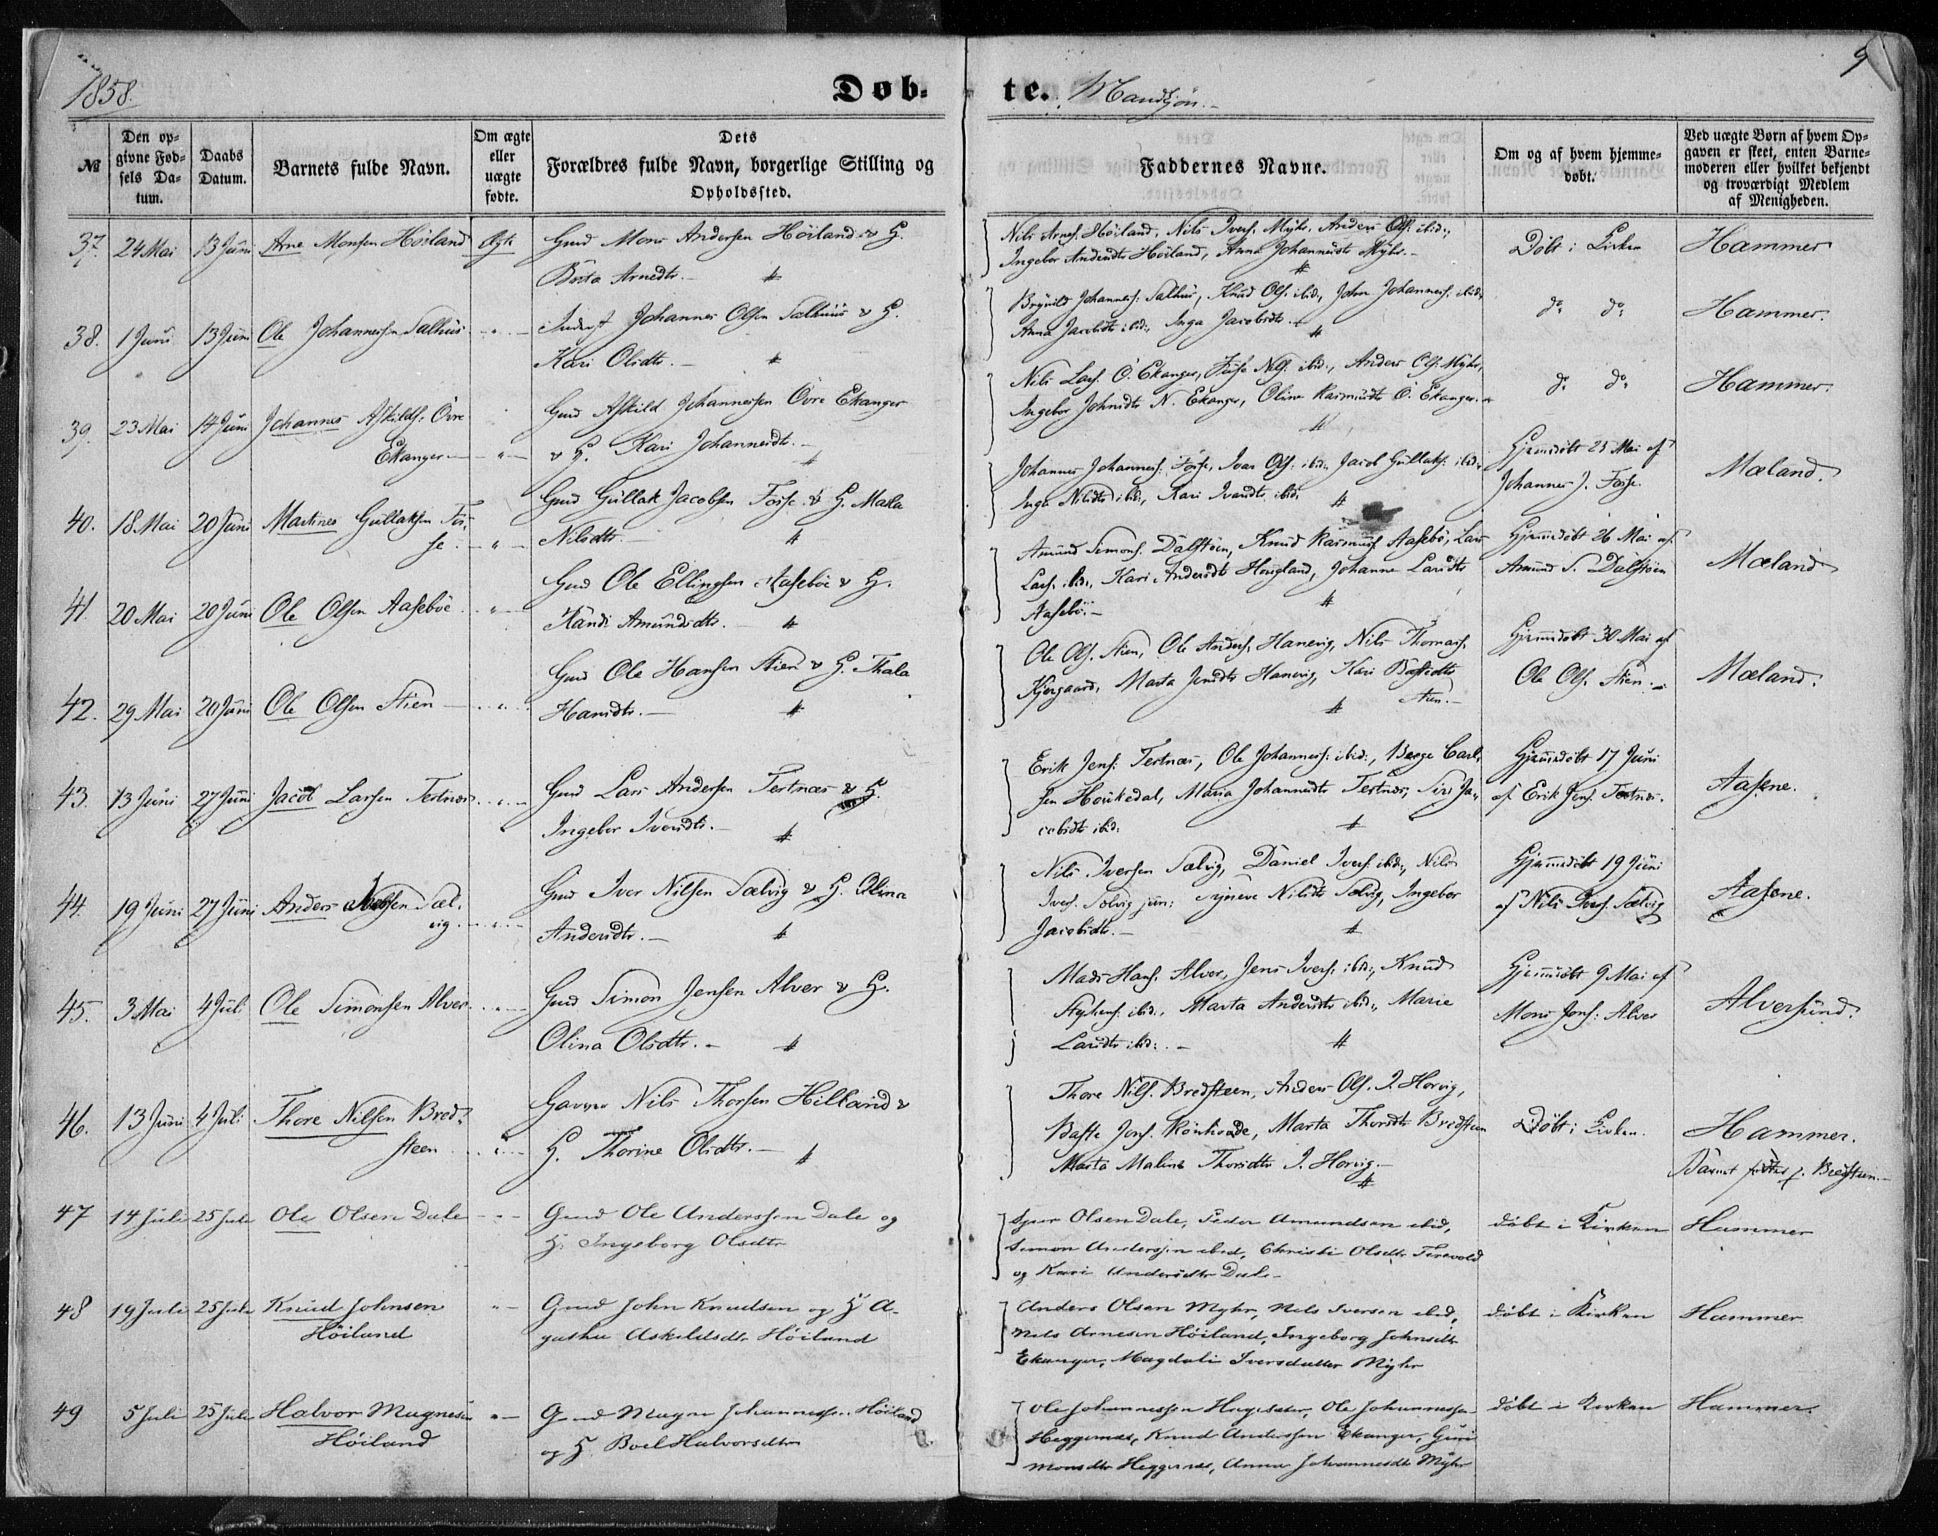 1858.
Døb-
te.
Mandkjøn.
9
№
Den opgivne Fødsels Datum.
Daabs Datum.
Barnets fulde Navn.
Om ægte eller uægte fødte.
Dets Forældres fulde Navn, borgerlige Stilling og Opholdssted.
Faddernes Navne.
Om og af hvem hjemmedøbt.
Ved uægte Børn af hvem Opgaven er skeet, enten Barnemoderen eller hvilket bekjendt og troværdigt Medlem af Menigheden.
37. 24 Mai 13 Juni Arne Monsen Höiland Ægte
Gmd Mons Andersen Höiland & H.
Brita Arnedtr. —
Nils Arnes. Höiland, Nils Ivers. Myhr, Anders Ols. ibid.,
Ingebor Andersdtr Höiland, Anna Johannesdtr Myhr. —
Döbt i Kirken
Hammer
38. 1 Juni 13 Juni Ole Johannessen Salhuus
Johannes Olsen Salhuus & H.
Kari Olsdtr. —
Brynild Johanness. Salhus, Knud Ols. ibid., John Johanness. ibid.,
Anna Jacobsdtr ibid., Inga Jacobsdtr. —
do do
Hammer.
39. 23 Mai 14 Juni Johannes Askilds. Övre
Ekanger —
Gmd Askild Johannessen Övre Ekanger
& H. Kari Johannesdtr. —
Nils Lars. Ö. Ekanger, Nils. ibid., Anders Ols. Myhr,
Ingebor Johnsdtr N. Ekanger, Oline Rasmusdtr Ö. Ekanger. —
do do
Hammer.
40. 18 Mai 20 Juni Martines Gullaksen Fos-
se. —
Gmd Gullak Jacobsen Fosse & H. Mala
Nilsdtr. —
Johannes Johanness. Fosse, Ivar Ols. ibid., Jacob Gullaks. ibid.,
Inga Nilsdtr ibid., Kari Ivarsdtr ibid.
Hjemmedöbt 25 Mai af
Johannes J. Fosse.
Mæland.
41. 20 Mai 20 Juni Ole Olsen Aasebøe
Gmd Ole Ellingsen Aasebøe & H.
Randi Amundsdtr. —
Amund Simons. Dalstöen, Knud Rasmus. Aasebö, Lars
Lars. ibid., Kari Andersdtr Hougland, Johanne Larsdtr
Aasebö. —
Hjemmedöbt 26 Mai af
Amund S. Dalstöen
Mæland
42. 29 Mai 20 Juni Ole Olsen Stien
Gmd Ole Hansen Stien & H. Thala
Hansdtr. —
Ole Ols. Stien, Ole Anders. Hanevig, Nils Thomass.
Kjergaard, Marta Jensdtr Hanevig, Kari
Stien. —
Hjemmedöbt 30 Mai af
Ole Ols. Stien. —
Mæland.
43. 13 Juni 27 Juni Jacob Larsen Tertnæs
Gmd Lars Andersen Tertnæs & H.
Ingebor Iversdtr. —
Erik Jens. Tertnæs, Ole Johanness. ibid., Børge Carl-
sen Houkedal, Maria Johannesdtr Tertnæs, Siri Ja-
cobsdtr ibid.
Hjemmedöbt 17 Juni
af Erik Jens. Tertnæs.
Aasene.
44. 19 Juni 27 Juni Anders Iversen Sæl-
vig. —
Gmd Iver Nilsen Sælvig & H. Olina
Andersdtr. —
Nils Iversen Sælvig, Daniel Ivers. ibid., Nils
Ivers. Sælvig jun., Synneve Nilsdtr Sælvig, Ingebor
Jacobsdtr. —
Hjemmedöbt 19 Juni
af Nils Ivers. Sælvig
Aasene.
45. 3 Mai 4 Juli Ole Simonsen Alver
Gmd Simon Jensen Alver & H.
Olina Olsdtr. —
Mads Hans. Alver, Jens Ivers. ibid., Knud
ibid., Marta Andersdtr ibid., Marie
Larsdtr ibid. —
Hjemmedöbt 9 Mai af
Mons Jens. Alver
Alversund.
46. 13 Juni 4 Juli Thore Nilsen Bred-
steen
Nils Thorsen Hilland &
H. Thorine Olsdtr. —
Thore Nils. Bredsteen, Anders Ols. I. Horvig,
Jons. Marta Thorsdtr Bredsteen
Marta Malene Thorsdtr I. Horvig. —
Döbt i Kirken.
Hammer.
Barnet födtes p. Bredsteen. —
47 14 Juli 25 Juli Ole Olsen Dale
Gmd Ole Anderssen Dale og
H. Ingeborg Olsdtr
Olsen Dale, Peder Amundsen ibid,
Simon Anderssen ibid, Christi Olsdtr
og Kari Andersdtr Dale —
döbt i Kirken
Hammer
48 19 Juli 25 Juli Knud Johnsen
Höiland
Gmd John Knudsen og H A-
gathe Askildsdtr Höiland
Anders Olsen Myhr, Nils Iversen ibid,
Nils Arnesen Höiland, Ingeborg Johnsdtr
Ekanger, Magdali Iversdatter Myhr
döbt i Kirken
Hammer
49 5 Juli 25 Juli Halvor Magnesen
Höiland
Gmd Magne Johannessen Höiland
og H. Boel Halvorsdtr
Ole Johannessen Ole Johannessen
Heggernæs, Knud Anderssen Ekanger, Guri
Monsdtr Heggernæs, Anna Johannesdtr Myhr
döbt i Kirken
Hammer.